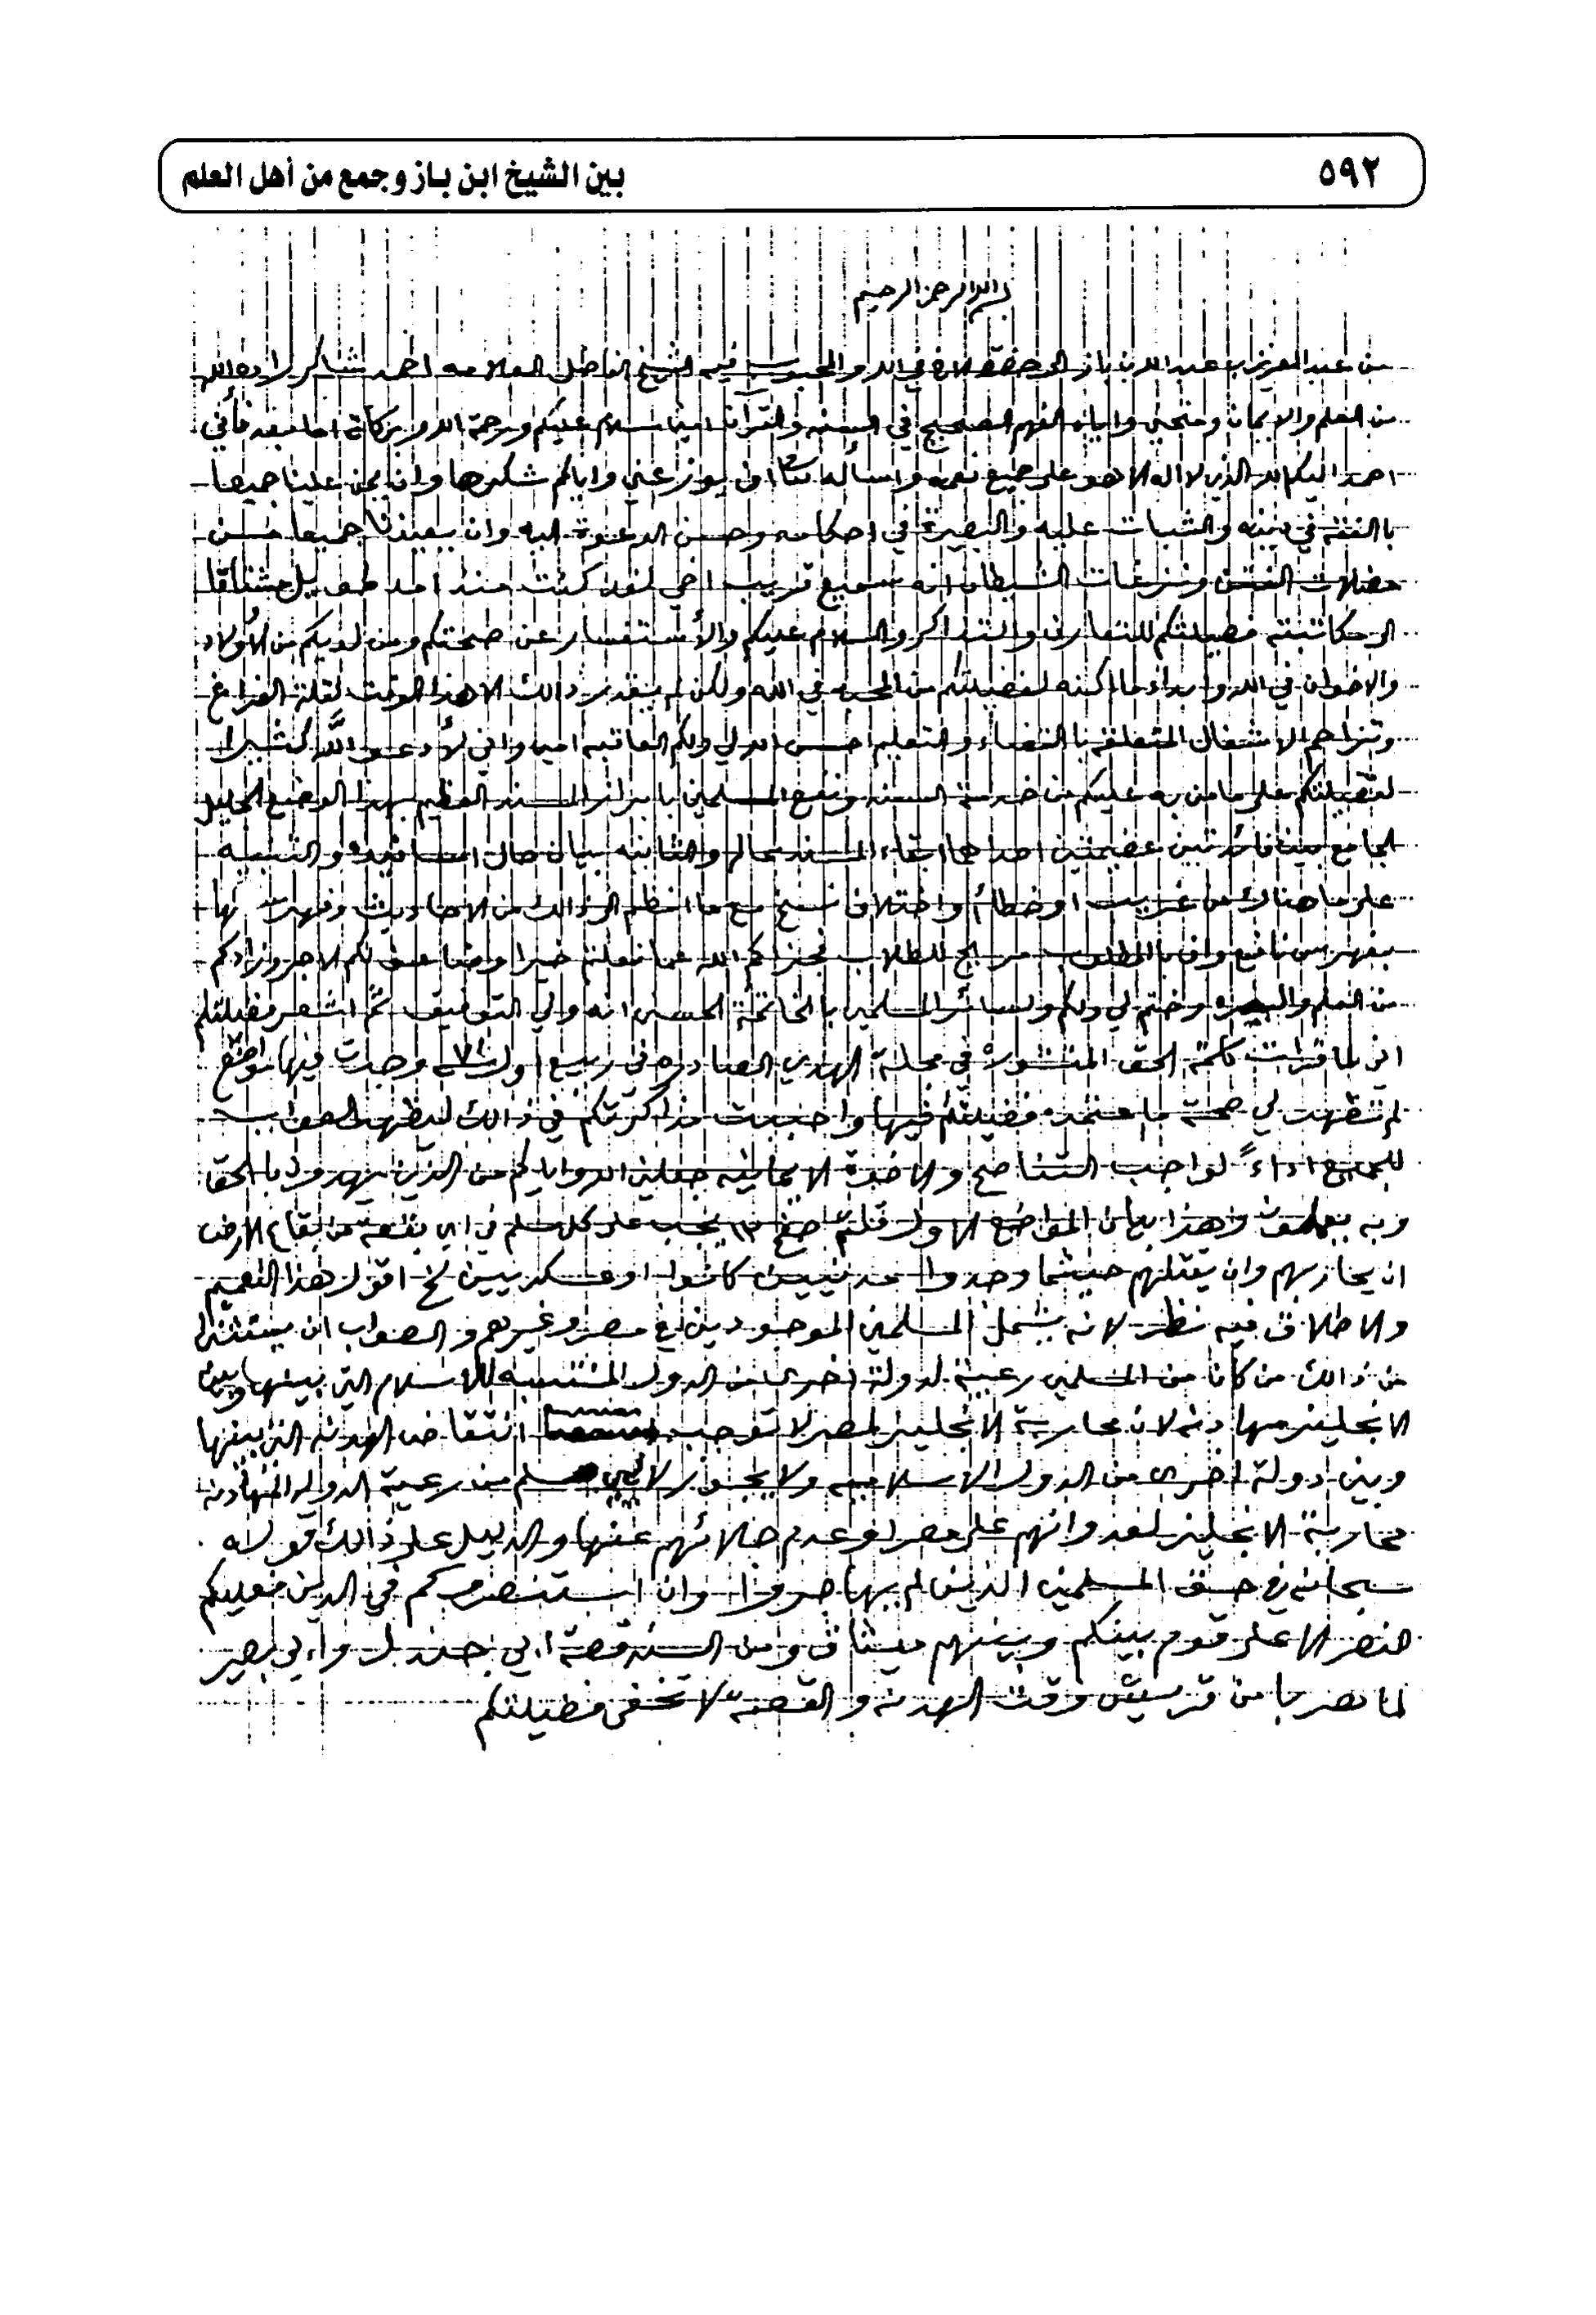 ٥٩٢
بين الشيخ ابن باز وجمع من أهل العلم
بسم الله الرحمن الرحيم
من عبد العزيز بن عبد الله بن باز الى حضرة الاخ في الله والمحبوب فيه الشيخ الفاضل العلامه احمد شاكر زاده الله
من العلم والايمان ومنحني واياه الفهم الصحيح في السنه والقرآن امين سلام عليكم ورحمة الله وبركاته اما بعد فأني
احمد اليكم الله الذي لا اله الا هو على جميع نعمه واسأله ان يوزعني واياكم شكرها وان يمن علينا جميعا
بالفقه في دينه والثبات عليه والبصيرة في احكامه وحسن الدعوة اليه وان يعيذنا جميعا من
مضلات الفتن ونزغات الشيطان انه سميع قريب اخي لقد كنت منذ امد طويل مشتاقا
الى مكاتبة فضيلتكم للتعارف والتذاكر والسلام عليكم والأستفسار عن صحتكم ومن لديكم من الأولاد
والاخوان في الله وابداء ما اكنه لفضيلتكم من المحبه في الله ولكن لم يقدر ذالك الا هذا الوقت لقلة الفراغ
وتزاحم الاشغال المتعلقه بالقضاء والتعليم احسن الله لي ولكم العاقبه امين واني لأدعو اللَّه كثيرا
لفضيلتكم على ما من به عليكم من خدمة السنه ونفع المسلمين بابراز المسند العظيم بهذا الوضع الجليل
الجامع بين فائدتين عضيمتين احداهما ابقاء المسند بحاله والثانيه بيان حال اسانيده والتنبيه
على ما هنالك من غريب او خطأ او اختلاف نسخ مع ما انظم الى ذالك من الاحاديث وفهرستها
بفهرس نافع واف بالمطلوب مريح للطلاب فجزاكم الله عما فعلتم خيرا وضاعف لكم الاجر وزادكم
من العلم والبصيره وختم لي ولكم ولسائر المسلمين بالخاتمة الحسنى انه ولي التوفيق ثم اشعر فضيلتكم
اني لما قرات كلمة الحق المنشورة في مجلة الهدي الصادره في ربيع اول ٧١ وجدت فيها مواضع
لم تظهر لي صحة ما عتمده فضيلتكم فيها واحببت مذاكرتكم في ذالك ليظهر الصواب
للجميع اداءً لواجب التناصح والاخوة الايمانيه جعلني الله واياكم من الذين يهدون بالحق
وبه يعدلون وهذا بيان المواضع الاول قلتم صفح ١٣ يجب على كل مسلم في اي بقعة من بقاع الارض
ان يحاربهم وان يقتلهم حيثما وجدوا مدنيين كانوا او عسكريين الخ اقول هذا التعميم
والاطلاق فيه نظر لانه يشمل المسلمين الموجودين في مصر وغيرهم والصواب ان يستثنى
من ذالك من كان من المسلمين رعية لدولة اخرى من الدول المنتسبه للاسلام التي بينها وبين
الانجليز مهادنه لان محاربة الانجليز لمصر لا توجب انتقاض الهدنه التي بينها
وبين دولة اخرى من الدول الاسلاميه ولا يجوز لاي مسلم من رعية الدوله المهادنه
محاربة الانجليز لعدوانهم على مصر وعدم جلائهم عنها والدليل على ذالك قوله
سبحانه في حق المسلمين الذين لم يهاجروا وان استنصروكم في الدين فعليكم
النصر الا على قوم بينكم وبينهم ميثاق ومن السنه قصة ابي جندل وابي بصير
لما هربا من قريش وقت الهدنه والقصة لا تخفى فضيلتكم